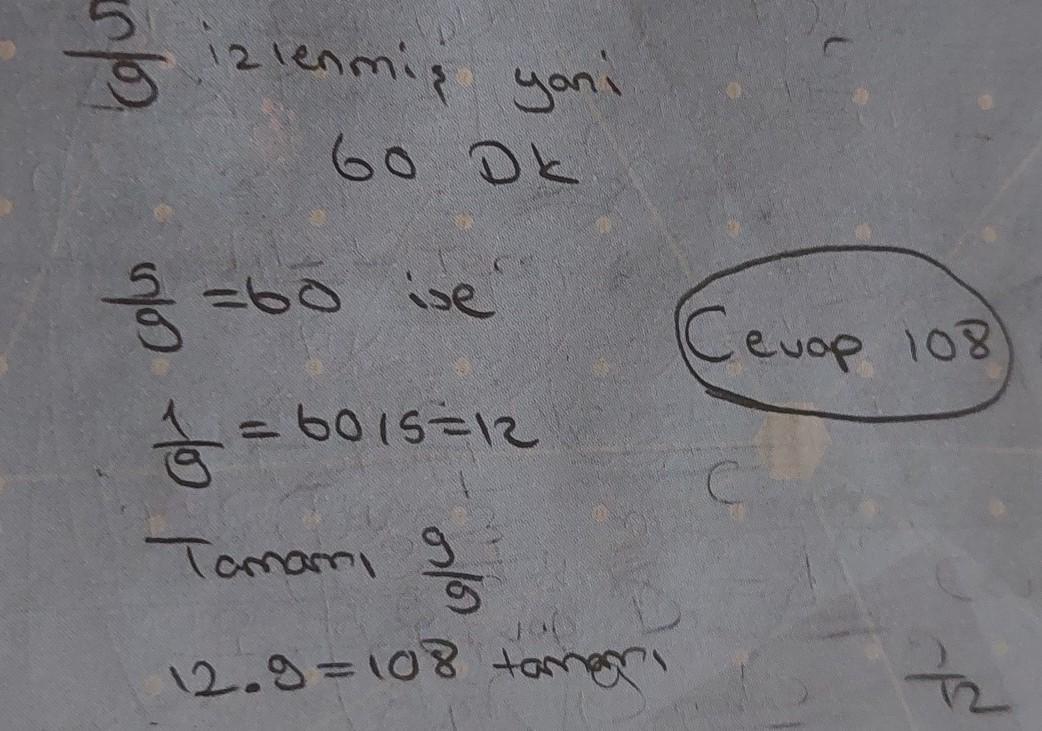 5/9 izlenmiş yani
60 Dk
5/9 = 60 ise
Cevap 108
1/9 = 60/5 = 12
C
Tamamı 9/9
12.9 = 108 tamamı
1/12